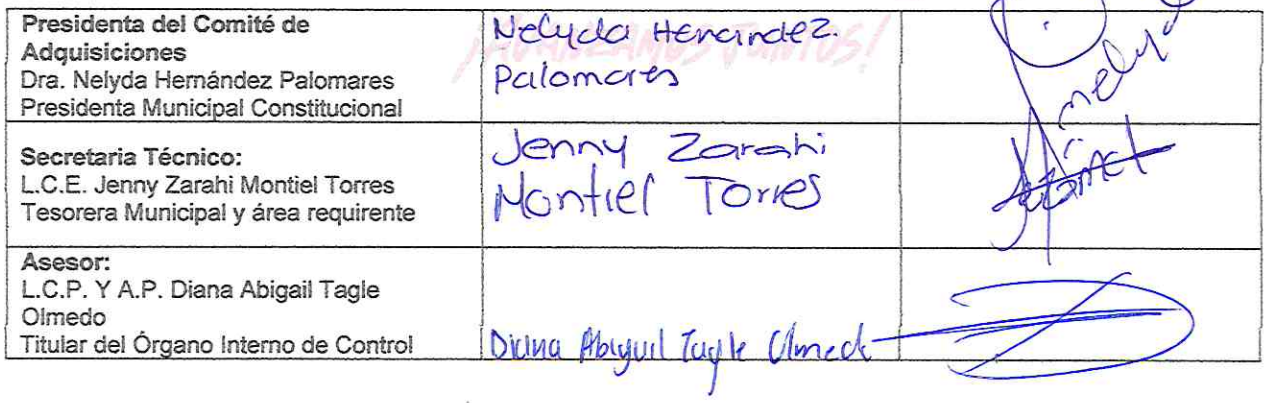 Presidenta del Comité de
Adquisiciones
Dra. Nelyda Hernández Palomares
Presidenta Municipal Constitucional
Nelyda Hernández.
Palomares
¡AVANZAMOS JUNTOS!
Secretaria Técnico:
L.C.E. Jenny Zarahi Montiel Torres
Tesorera Municipal y área requirente
Jenny Zarahi
Montiel Torres
Asesor:
L.C.P. Y A.P. Diana Abigail Tagle
Olmedo
Titular del Órgano Interno de Control
Diana Abigail Tagle Olmedo